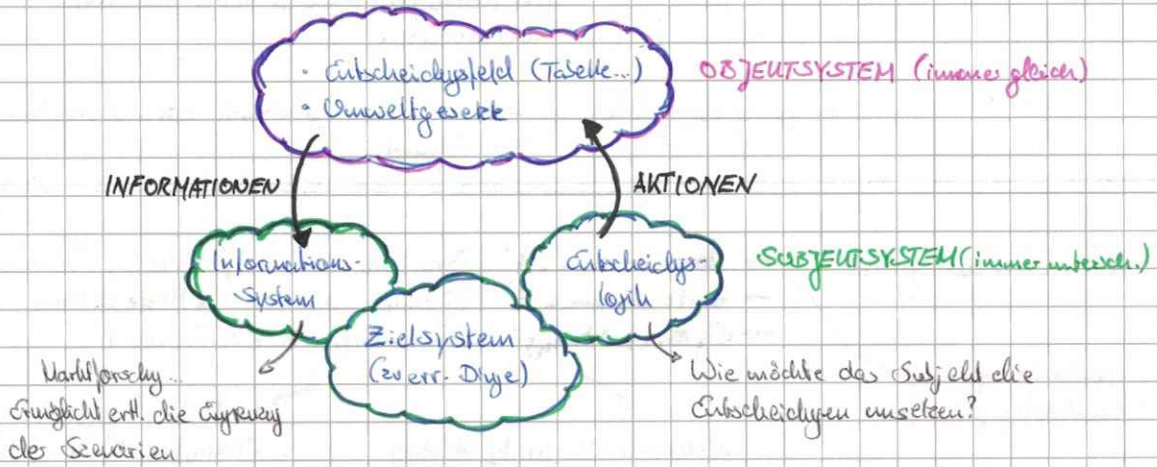 • Entscheidungsfeld (Tabelle...)
• Umweltgesetze
OBJEKTSYSTEM (immer gleich)
INFORMATIONEN
AKTIONEN
Informations-
System
Entscheidungs-
logik
SUBJEKTSYSTEM (immer untersch.)
Zielsystem
(zu err. Dinge)
Marktforschung...
Ermöglicht evtl. die Eingrenzung
der Szenarien
Wie möchte das Subjekt die
Entscheidungen umsetzen?